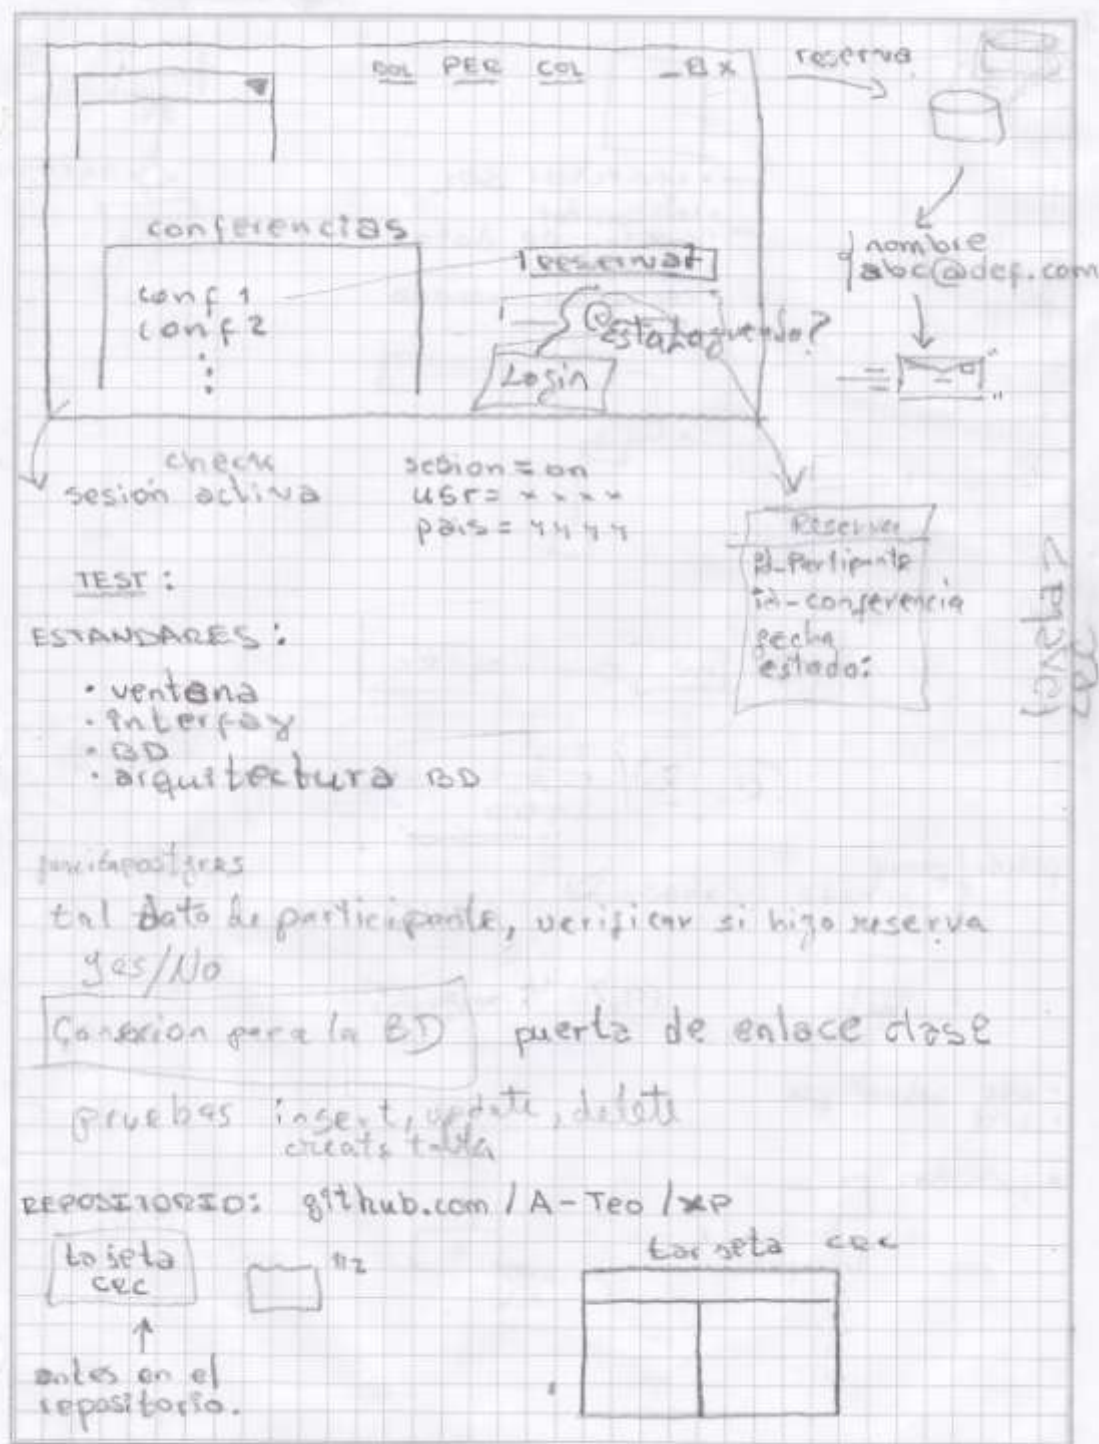 BOL PER COL _ X
reserva
conferencias
conf 1
conf 2
reservar
nombre
abc@def.com
@
Login
check
sesión activa
sesion = on
usr= xxxx
pais = yyyy
Reserva
id-conferencia
fecha
estado:
TEST:
ESTANDARES:
• ventana
• interfaz
• BD
• arquitectura BD
tal dato de participante, verificar si hizo reserva
yes/No
Conexion para la BD
puerta de enlace clase
pruebas insert, update, delete
create tabla
REPOSITORIO: github.com/A-Teo/xp
tajeta
crc
tarjeta crc
antes en el
repositorio.